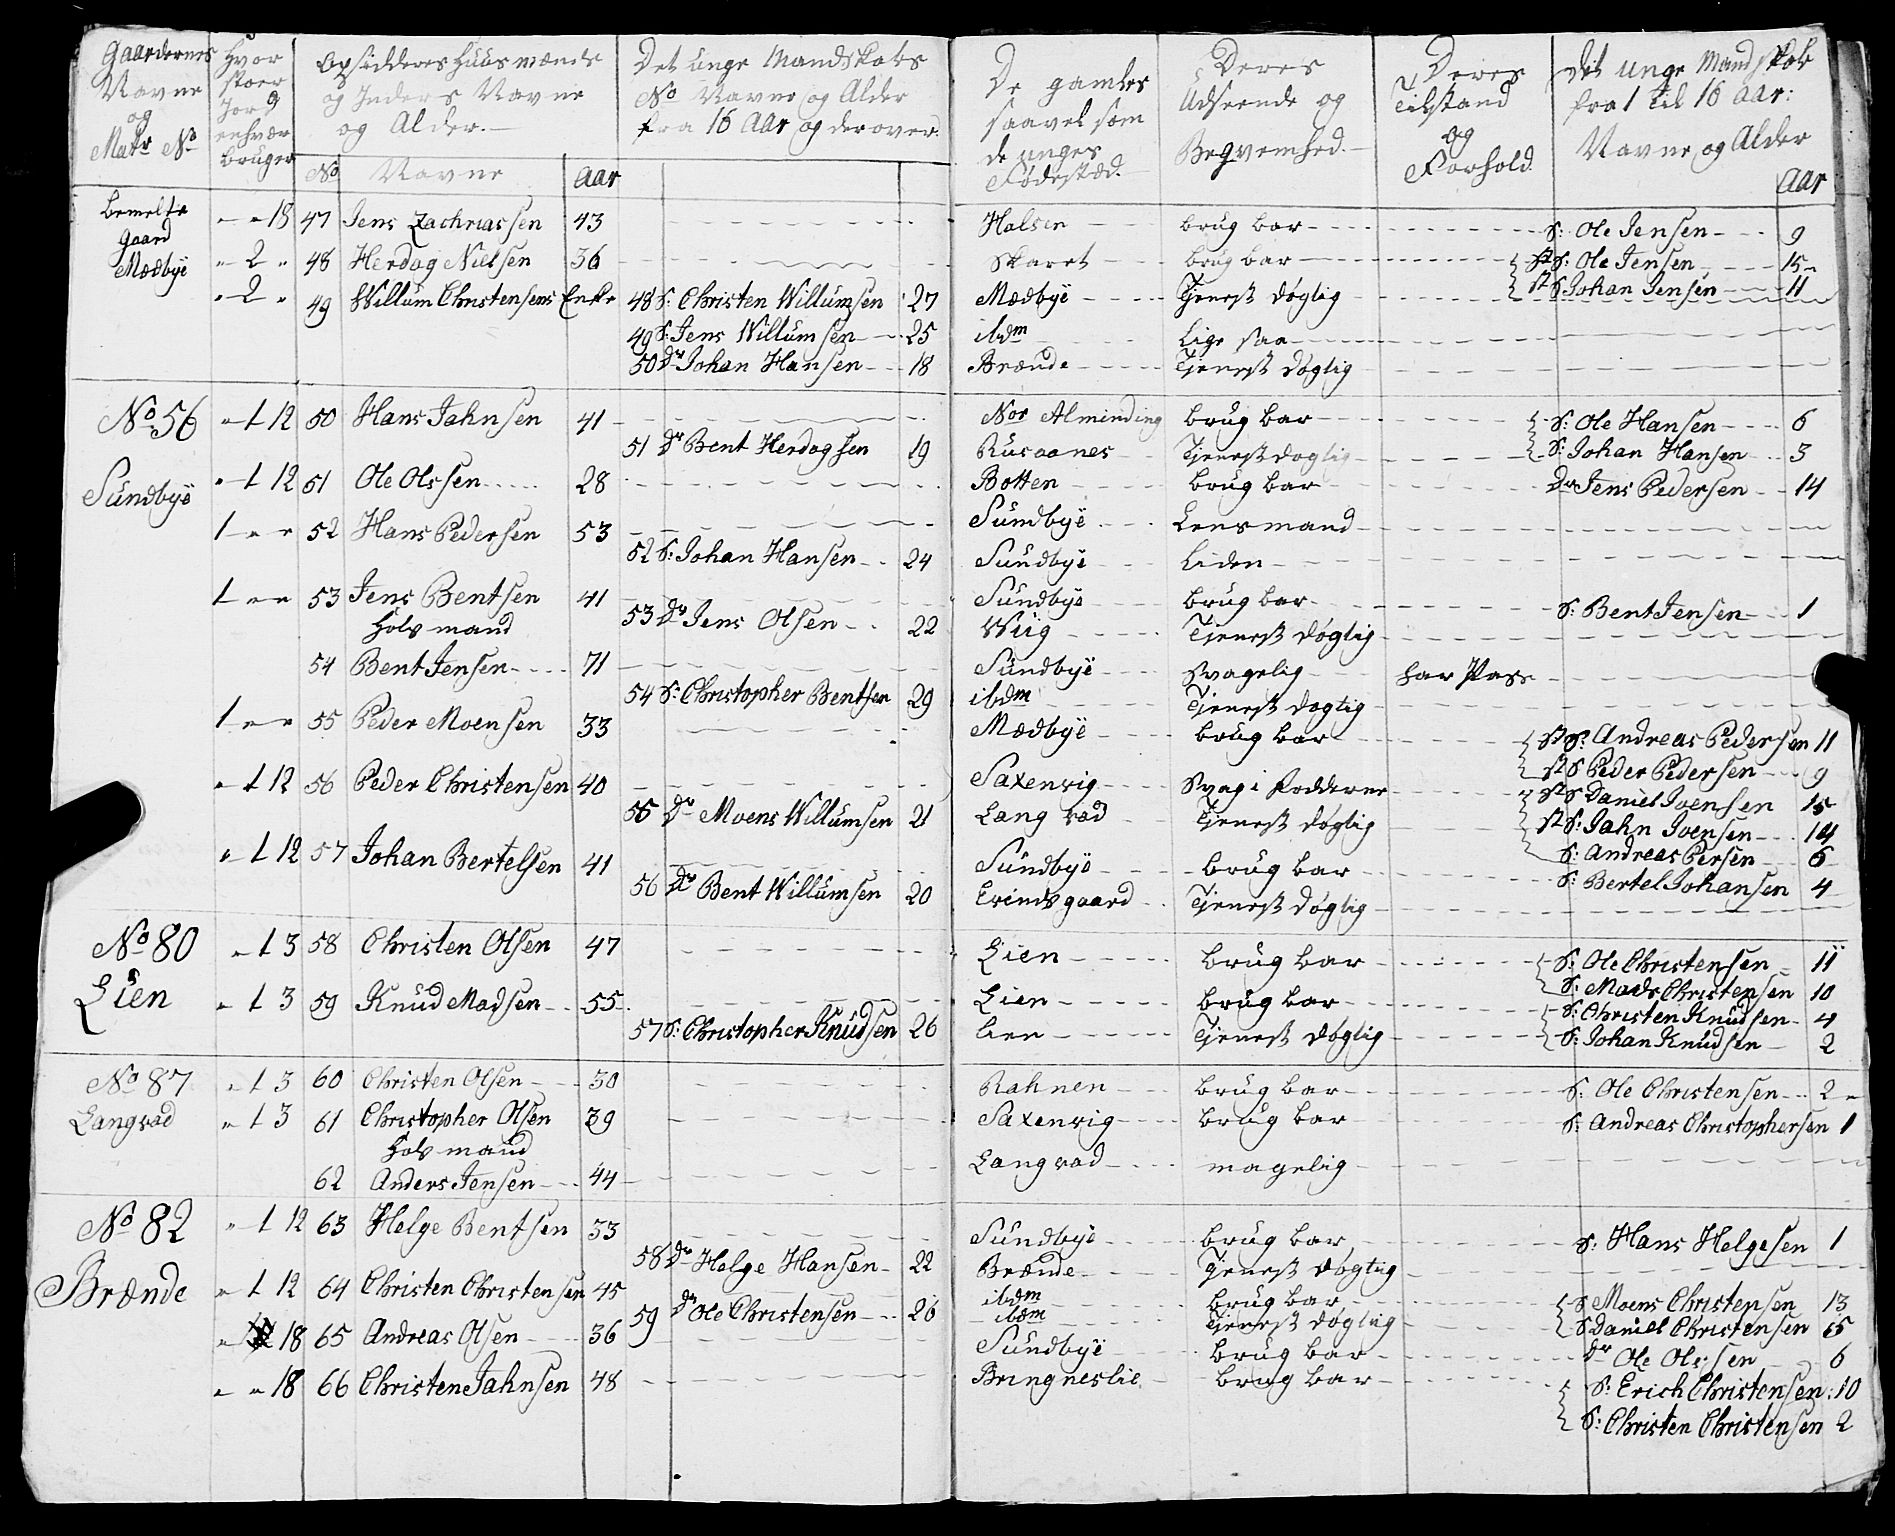 Gaardernes Navne og Matr No
Hvor stoer Jorg enhver bruger
Opsidderes Huusmænds og Inders Navne og Alder.
Det unge Mandskabs No Navne og Alder fra 16 Aar og derover.
De gamles saavel som de unges Fødestæd.
Deres Udseende og Begvemhed.
Deres Tilstand og Forhold
Det unge Mandskab fra 1 til 16 Aar: Navne og Alder
No Navne Aar Aar
bemelte gaard Mædbye
" " 18 47 Jens Zachriassen 43 Halsen brug bar S: Ole Jensen 9
" 2 " 48 Herdog Nielsen 36 Skaret brug bar St S: Ole Jensen 15
St S Johan Jensen 11
" 2 " 49 Willum Christensens Enke 48 S: Christen Willumsen 27 Mædbye Tjenest døgtig
49 S: Jens Willumsen 25 ibdm Lige saa
50 Dr Johan Hansen 18 Brænde Tjenest døgtig
No 56 Sundbye
" 1 12 50 Hans Jahnsen 41 Nor Alminding brug bar S: Ole Hansen 6
51 Dr Bent Herdogsen 19 Rusaanes Tjenest dogtig S: Johan Hansen 3
" 1 12 51 Ole Olssen 28 Botten brug bar Dr Jens Pedersen 14
1 " " 52 Hans Pedersen 53 Sundbye Lensmand
52 S: Johan Hansen 24 Sundbye Liden
1 " " 53 Jens Bentsen 41 Sundbye brug bar S: Bent Jensen 1
53 Dr Jens Olsen 22 Wiig Tjenest døgtig
Holv mand
54 Bent Jensen 71 Sundbye svagelig har Pass
54 S: Christopher Bentsen 29 ibdm Tjenest dogtig
1 " " 55 Peder Moensen 33 Mædbye brug bar St S: Andreas Pedersen 11
St S Peder Pedersen 9
" 1 12 56 Peder Christensen 40 Saxenvig Svag i Fodderne St S Daniel Ivensen 15
55 Dr Moens Willumsen 21 Langvad Tjenest døgtig St S: Jahn Ivensen 14
S: Andreas Persen 6
" 1 12 57 Johan Bertelsen 41 Sundbye brug bar S: Bertel Johansen 4
56 Dr Bent Willumsen 20 Evindsgaard Tjenest døgtig
No 80 Lien
" 1 3 58 Christen Olsen 47 Lien brug bar S: Ole Christensen 11
S: Mads Christensen 10
" 1 3 59 Knud Madsen 55 Lien brug bar S: Christen Knudsen 4
57 S: Christopher Knudsen 26 Lien Tjenest døgtig S: Johan Knudsen 2
No 87 Langvad
" 1 3 60 Christen Olsen 30 Rahnen brug bar S: Ole Christensen 2
" 1 3 61 Christopher Olsen 39 Saxenvig brug bar S: Andreas Christophersen 1
Holv mand
62 Anders Jensen 44 Langvad magelig
No 82 Brænde
" 1 12 63 Helge Bentsen 33 Sundbye brug bar S: Hans Helgesen 1
58 Dr Helge Hansen 22 Brænde Tjenest døgtig
" 1 12 64 Christen Christensen 45 ibdm brug bar S Moens Christensen 13
59 Dr Ole Christensen 26 ibdm Tjenest døgtig S Daniel Christensen 5
" 18 65 Andreas Olsen 36 Sundbye brug bar Dr Ole Olssen 6
" " 18 66 Christen Jahnsen 48 Bringneslie brug bar S: Erich Christensen 10
S: Christen Christensen 2